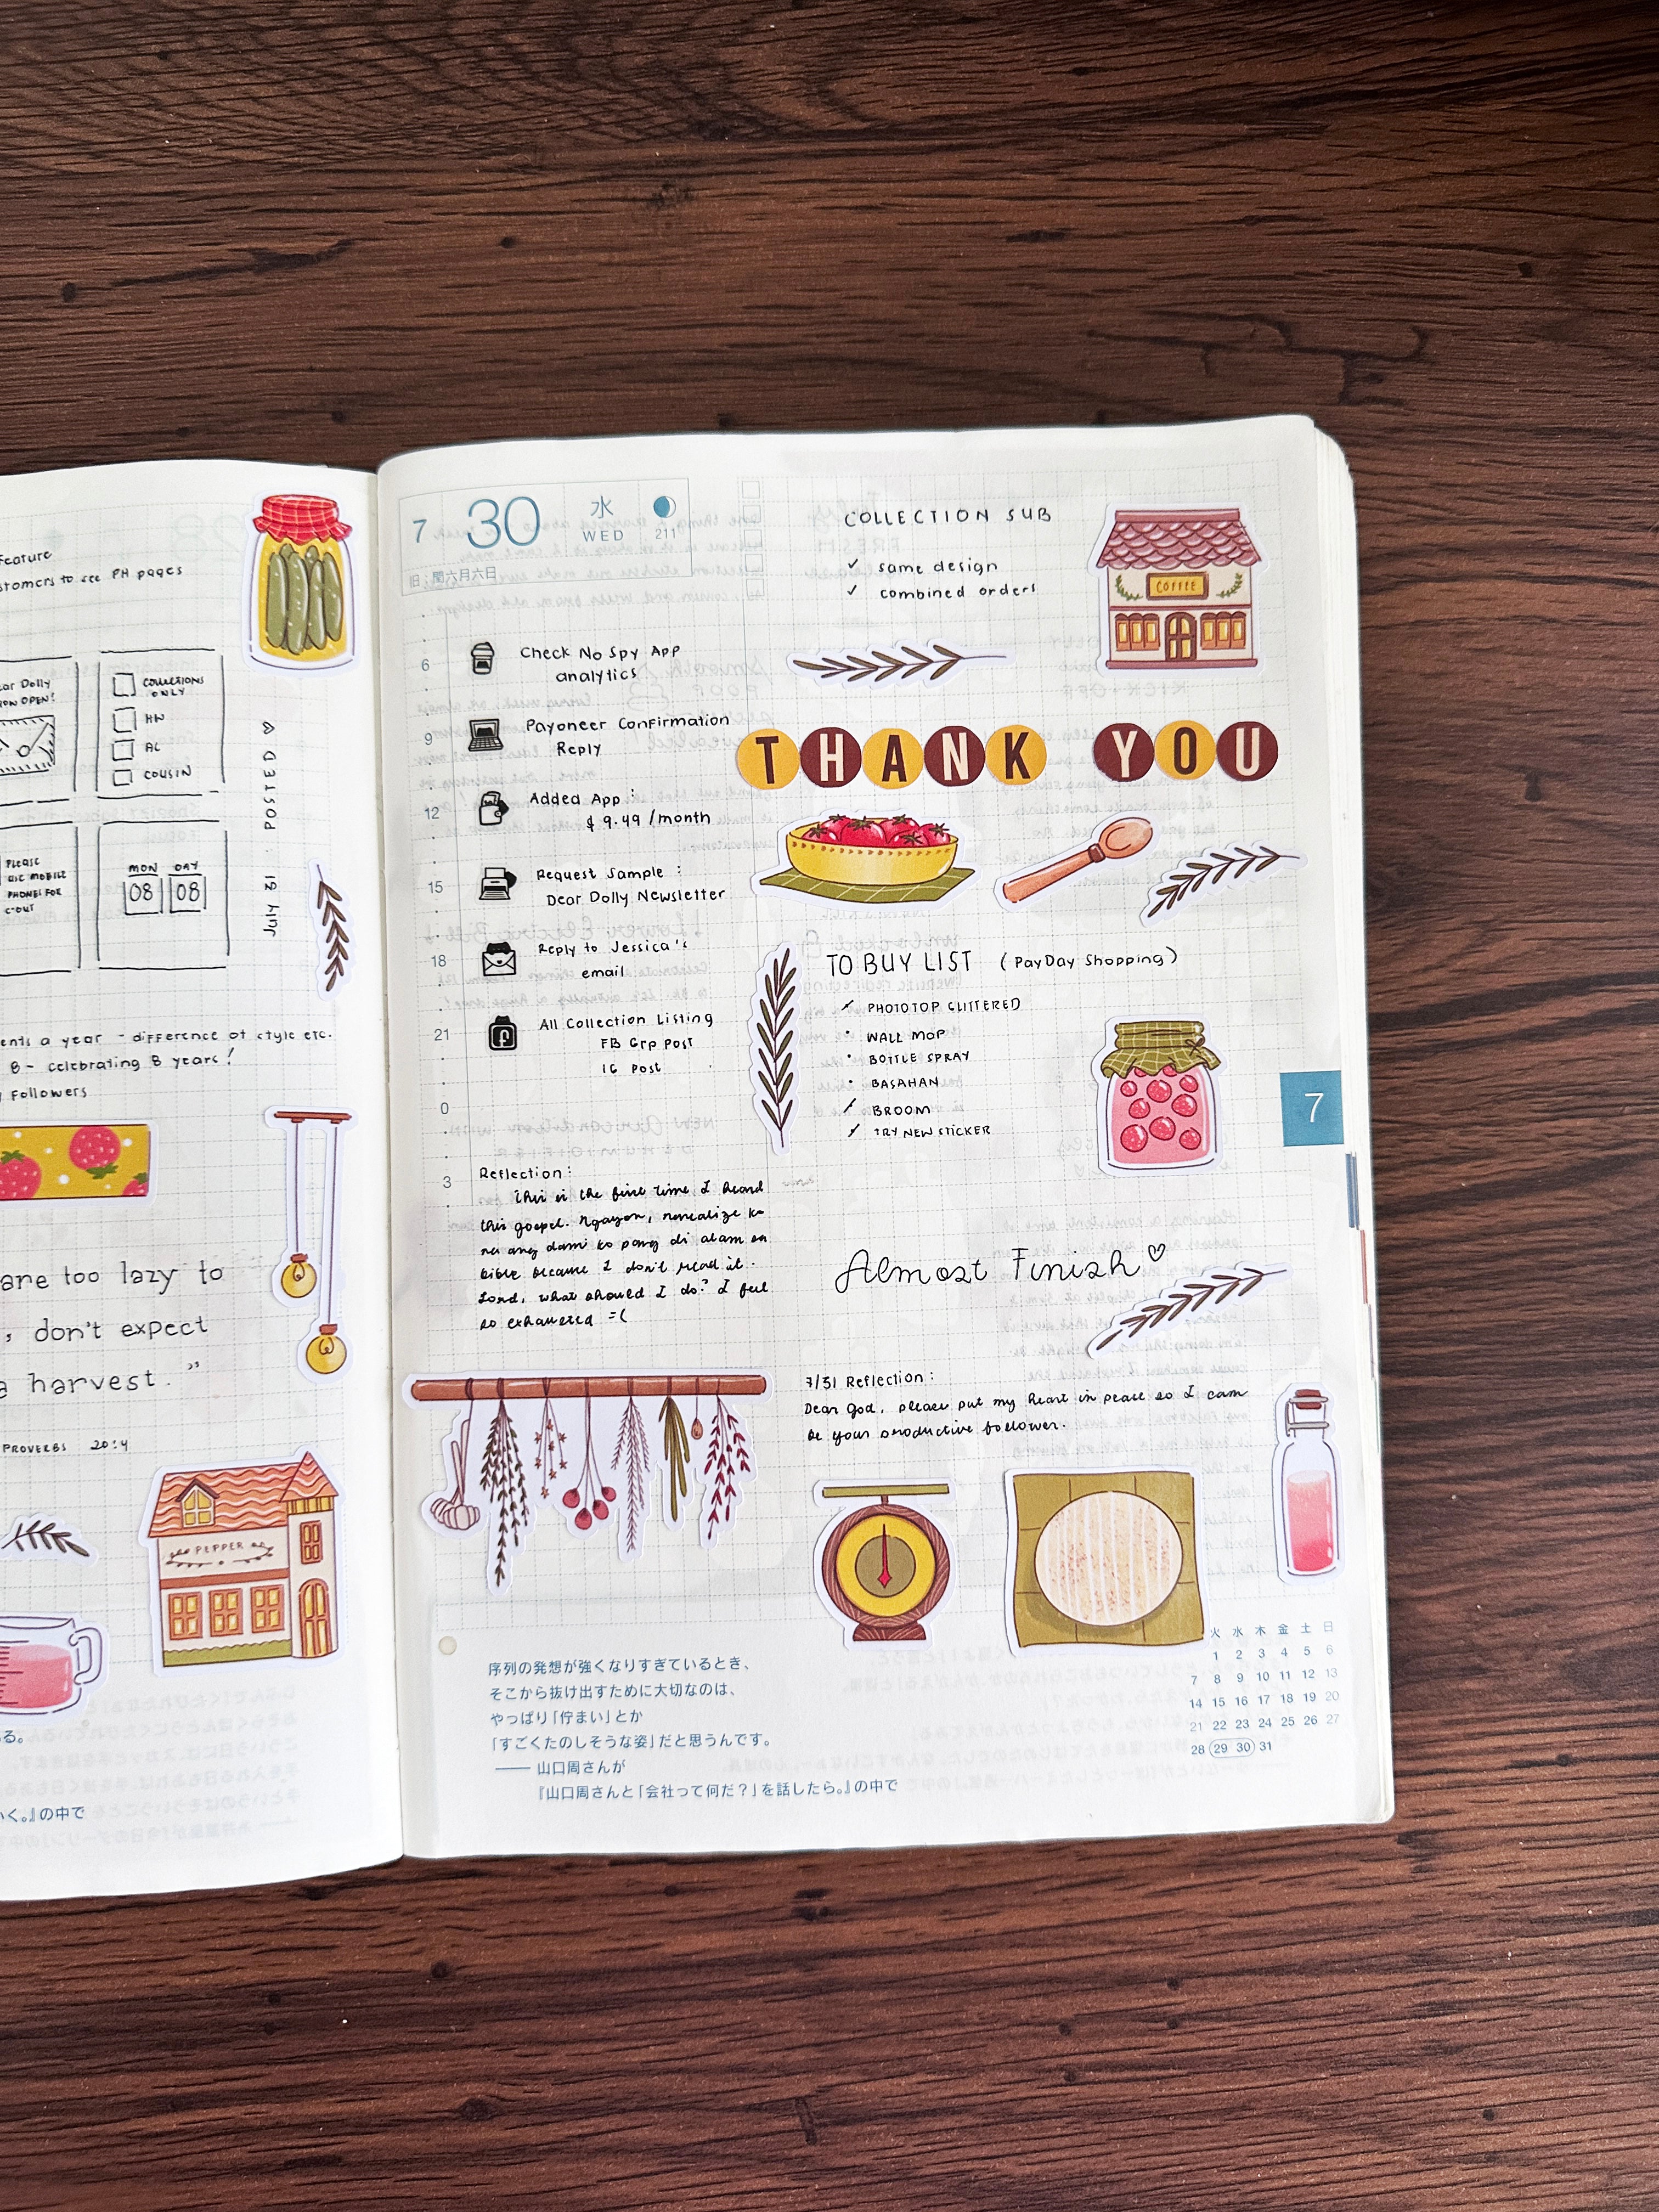 Feature
customers to see PH pages
Dear Dolly
NOW OPEN!
COLLECTIONS
ONLY
HW
AC
COUSIN
PLEASE
USE MOBILE
PHONES FOR
C-OUT
MON DAY
08 08
July 31 · POSTED ♡
ents a year - difference of style etc.
8 - celebrating 8 years!
Followers
are too lazy to
, don't expect
a harvest."
PROVERBS 20:4
PEPPER
る。
いく。』の中で
7 30 水
WED 211
旧:閏六月六日
6 Check No Spy App
analytics
9 Payoneer Confirmation
Reply
12 Added App:
$ 9.49 /month
15 Request Sample:
Dear Dolly Newsletter
18 Reply to Jessica's
email
21 All Collection Listing
FB Grp Post
IG Post
0
3
Reflection:
This is the first time I heard
this gospel. Ngayon, narealize ko
na ang dami ko pang di alam sa
bible because I don't read it.
Lord, what should I do? I feel
so exhausted =(
COLLECTION SUB
✓ same design
✓ combined orders
COFFEE
THANK YOU
TO BUY LIST (PayDay Shopping)
PHOTOTOP GLITTERED
• WALL MOP
• BOTTLE SPRAY
• BASAHAN
BROOM
TRY NEW STICKER
7
Almost Finish ♡
7/31 Reflection:
Dear God, please put my heart in peace so I can
be your productive follower.
序列の発想が強くなりすぎているとき、
そこから抜け出すために大切なのは、
やっぱり「佇まい」とか
「すごくたのしそうな姿」だと思うんです。
—— 山口周さんが
『山口周さんと「会社って何だ?」を話したら。』の中で
火 水 木 金 土 日
1 2 3 4 5 6
7 8 9 10 11 12 13
14 15 16 17 18 19 20
21 22 23 24 25 26 27
28 29 30 31